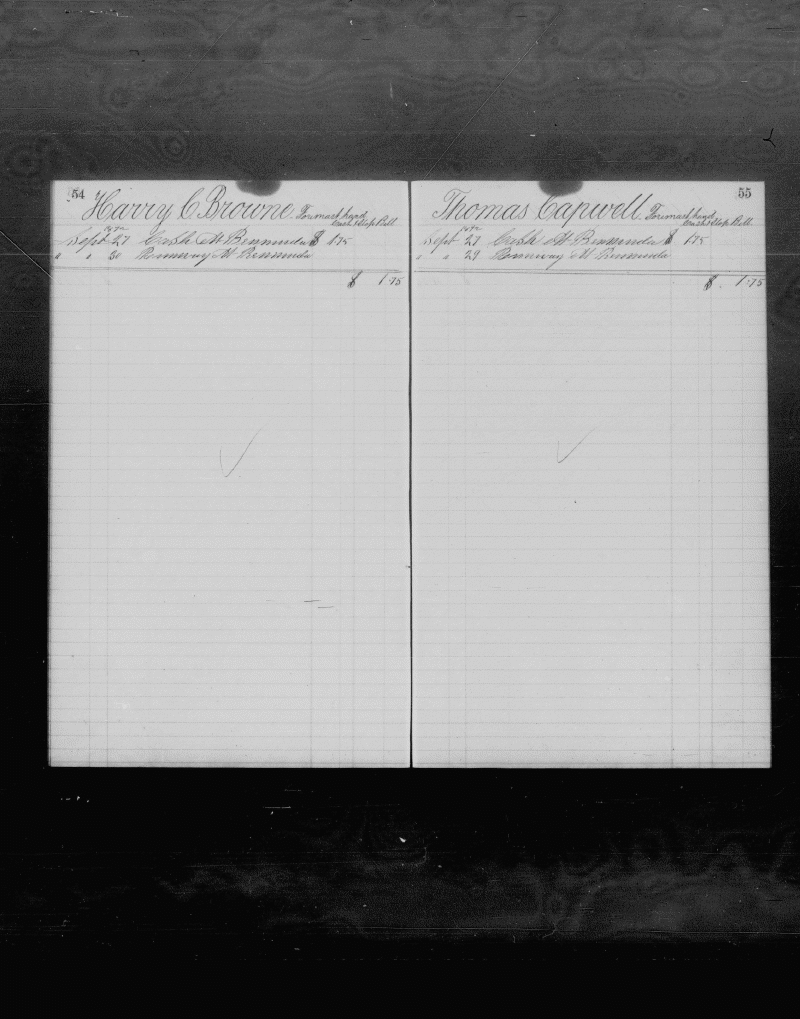 54
Harry C. Browne. Foremast hand
Cash & Slop Bill
Sept 27 Cash At Bermuda $ 1 75
" " 30 Runaway At Bermuda
$ 1.75
55
Thomas Capwell. Foremast hand
Cash & Slop Bill
Sept 27 Cash At Bermuda $ 1 75
" " 29 Runaway At Bermuda
$ 1.75